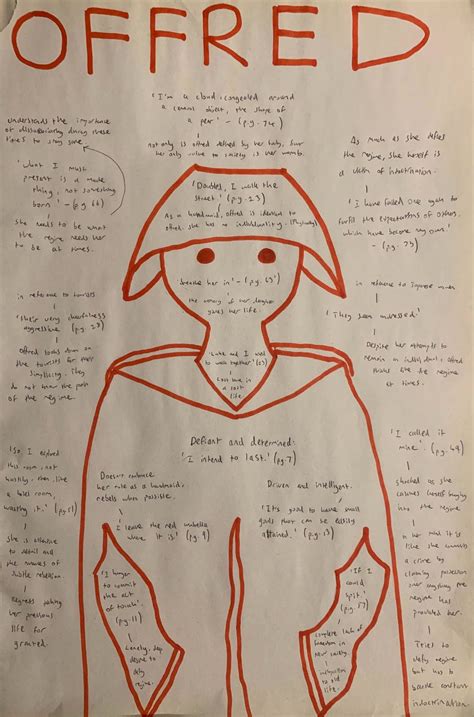 OFFRED
'I'm a cloud, congealed around
a central object, the shape of
a pear' - (p.g. 74)
not only is offred defined by her body, but
her only value to society is her womb.
understands the importance
of
during these
times to stay sane.
'What I must
present is a made
thing, not something
born' - (pg 66)
She needs to be what
the regime needs her
to be at times.
As much as she defies
the regime, she herself is
a victim of indoctrination.
'I have failed once again to
fulfil the expectations of others,
which have become my own.'
- (pg. 73)
'Doubled, I walk the
street.' (p.g. - 23)
As a handmaid, offred is identical to
others. She has no individuality. (Physically)
(pg. 63)
the memory of her daughter
gives her life.
in reference to tourists
'their very cheerfulness
aggressive' (p.g. 23)
Offred looks down on
the tourists for their
simplicity. They
do not know the pain
of the regime.
in reference to Japanese women
'They seem undressed'
Despite her attempts to
remain an individual, offred
thinks like the regime
at times.
'Luke and I used
to walk together' (23)
life
Defiant and determined:
'I intend to last.' (pg. 7)
Doesn't embrace
her role as a handmaid:
rebels when possible.
'I leave the red umbrella
where it is' (pg. 9)
Driven and intelligent.
'It's good to have small
goals that can be easily
attained.' (p.g. 13)
'So, I explored
this room, not
hastily, then, like
a hotel room,
wasting it.' (pg 51)
she is attentive
to detail and
the nuances of
subtle rebellion.
Regrets taking
her previous
life for
granted.
'I called it
mine'. (p.g. 49)
Shocked as she
catches herself
the regime
a crime by
claiming possession
over anything
regime has
provided her.
Tries to
defy regime
but has to
constant
indoctrination
'I hunger
to commit
the act
of touch'.
(pg. 11)
Lonely, deep
desire to
defy
regime.
'If I
could
spit'
complete lack of
freedom in
society.
to old
life.